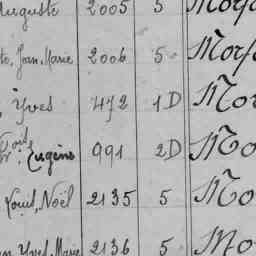 Auguste 2005 5 Morf
te, Jean, Marie 2006 5 Morf
, Yves 472 1D Mor
Eugène 991 2D Mo
Louis, Noël 2135 5 Mo
Yves, Marie 2136 5 Mo